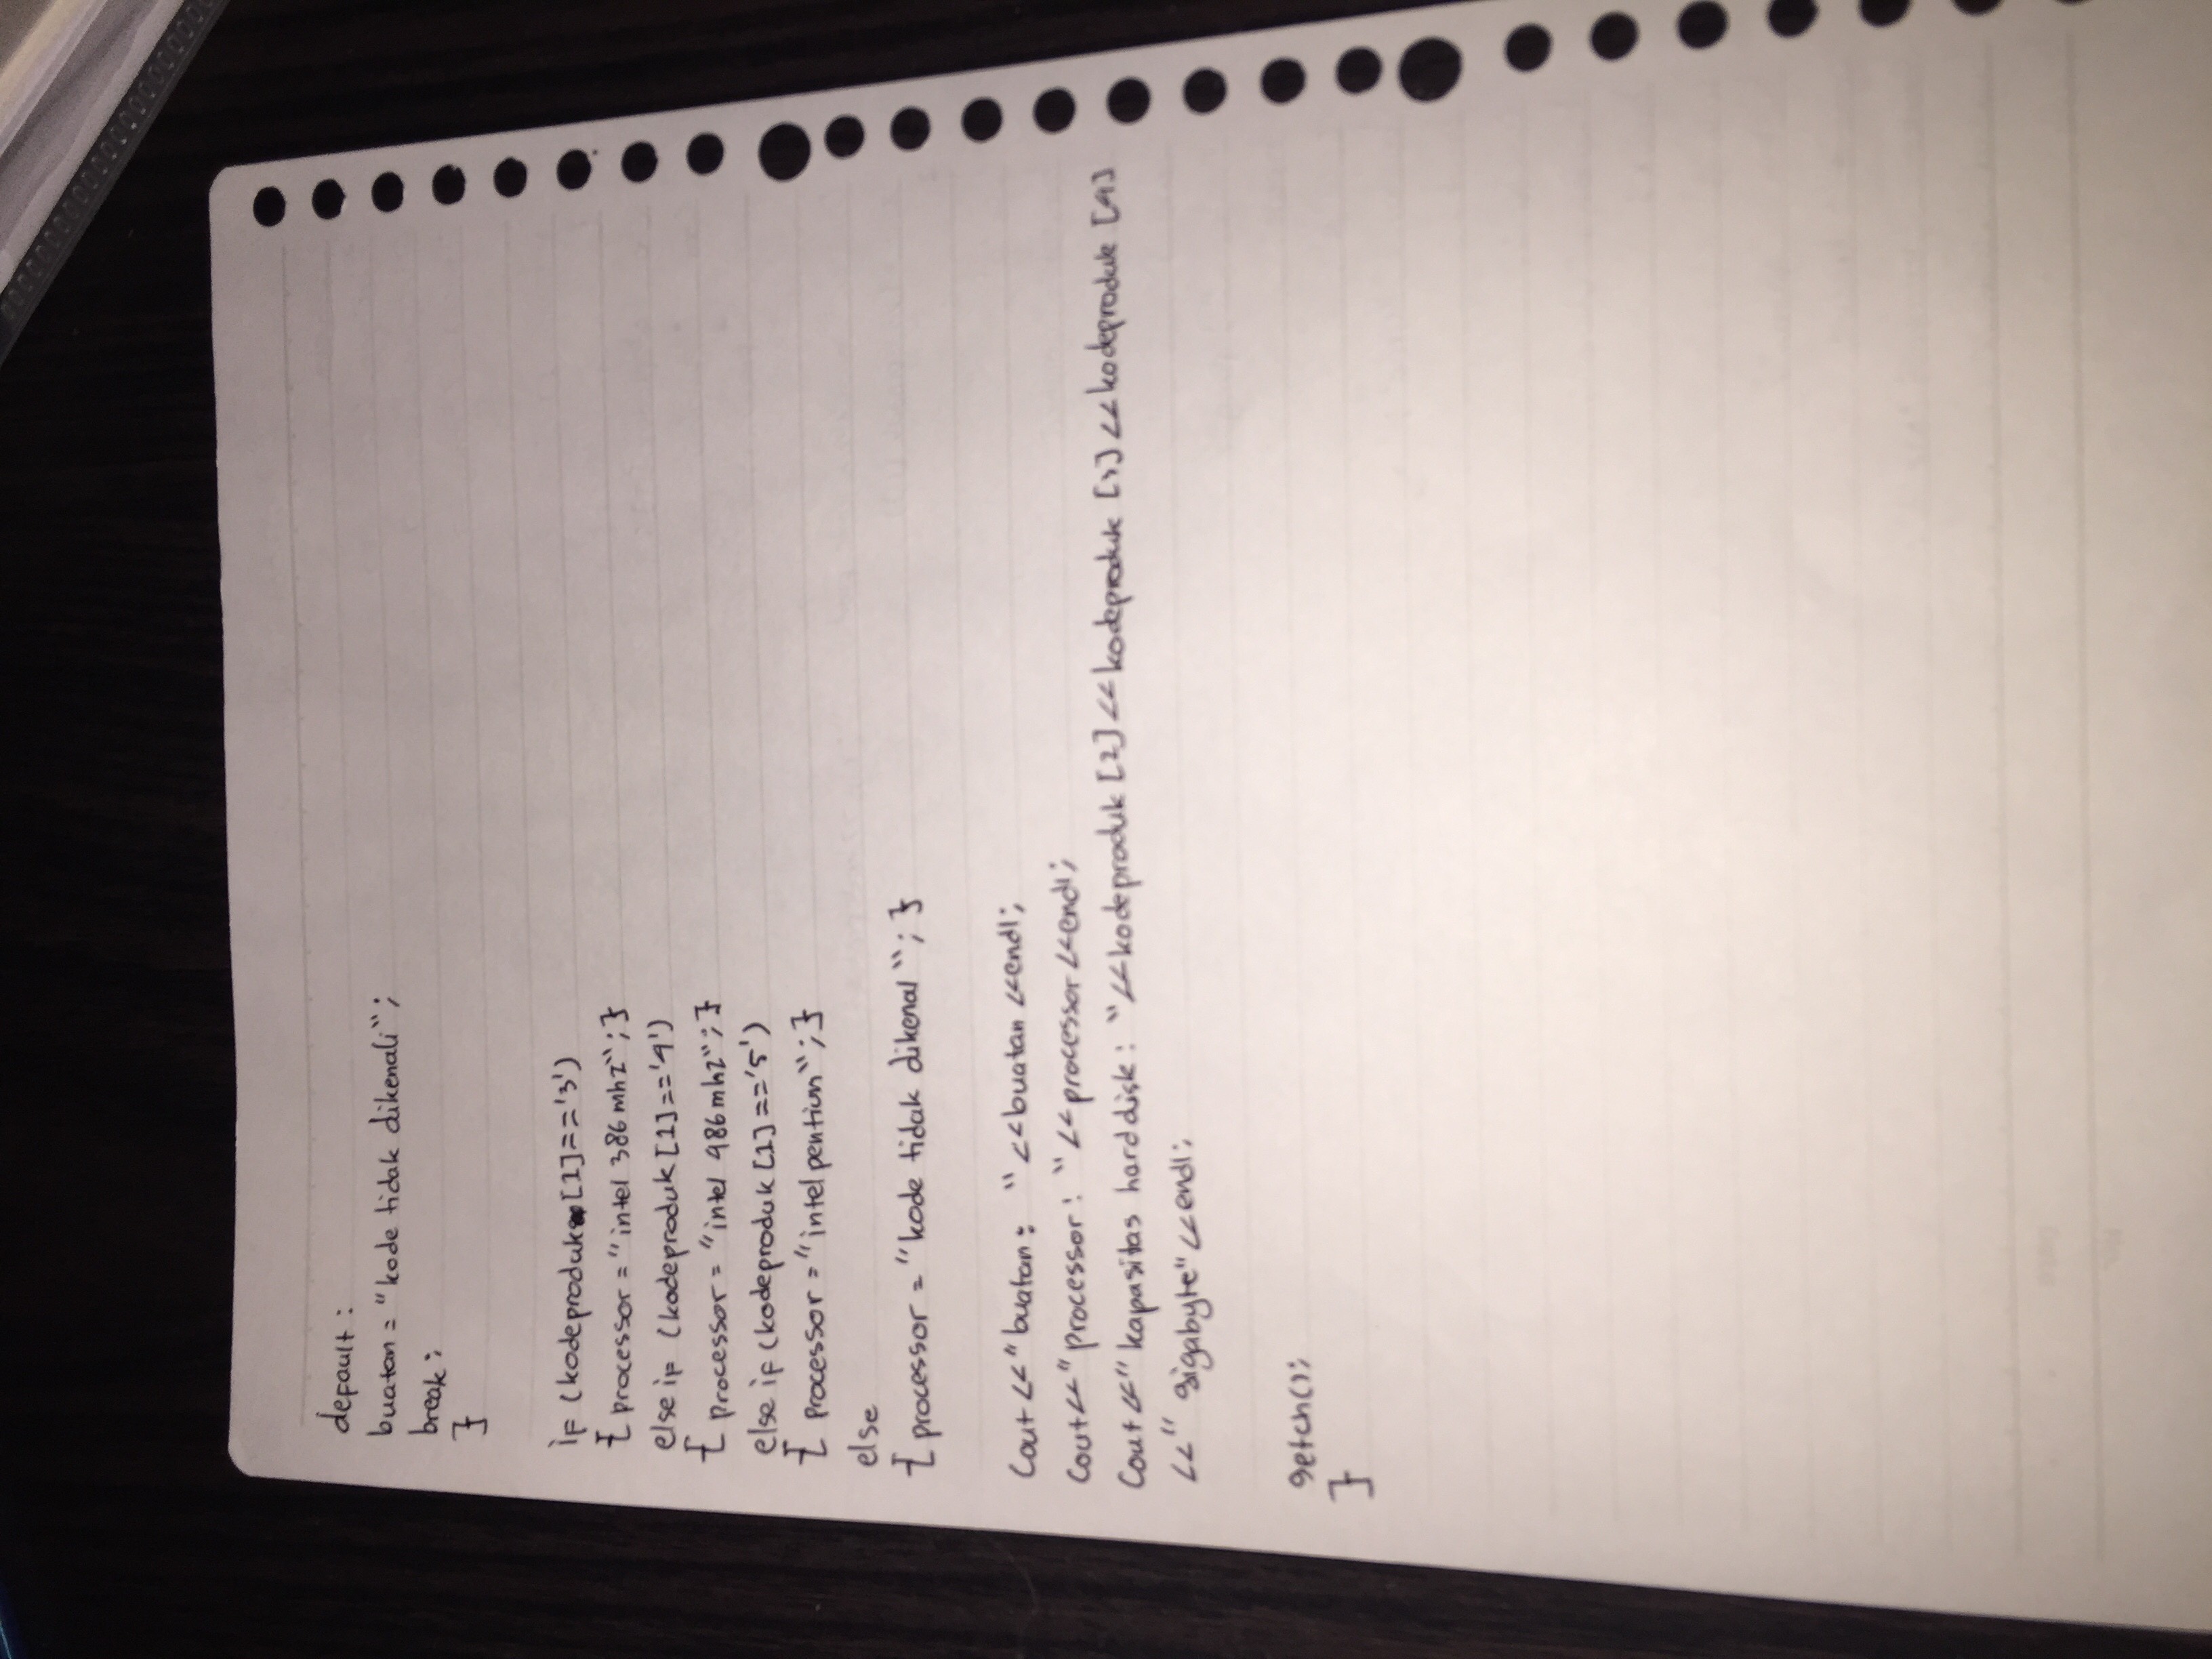 default :
buatan = "kode tidak dikenali";
break;
}
if (kodeproduk [1]=='3')
{ processor = "intel 386 mhz"; }
else if (kodeproduk [1]=='4')
{ processor = "intel 486 mhz"; }
else if (kodeproduk [1]=='5')
{ processor = "intel pentium"; }
else
{ processor = "kode tidak dikenal"; }
Cout <<"buatan: "<<buatan <<endl;
Cout<<"processor: "<<processor <<endl;
Cout <<"kapasitas harddisk: "<<kodeproduk [2]<<kodeproduk [3]<<kodeproduk [4]
<<" gigabyte"<<endl;
getch();
}